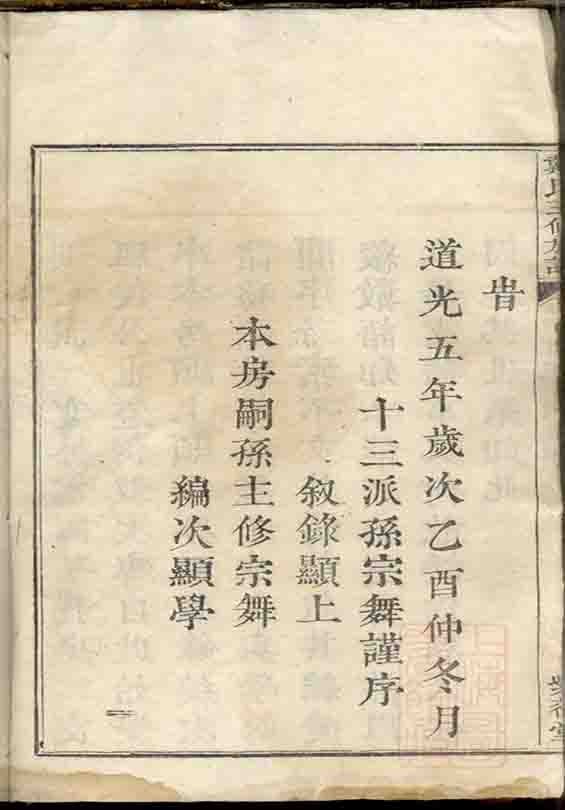 旹
道光五年歲次乙酉仲冬月
十三派孫宗舞謹序
叙錄顯上
本房嗣孫主修宗舞
編次顯學